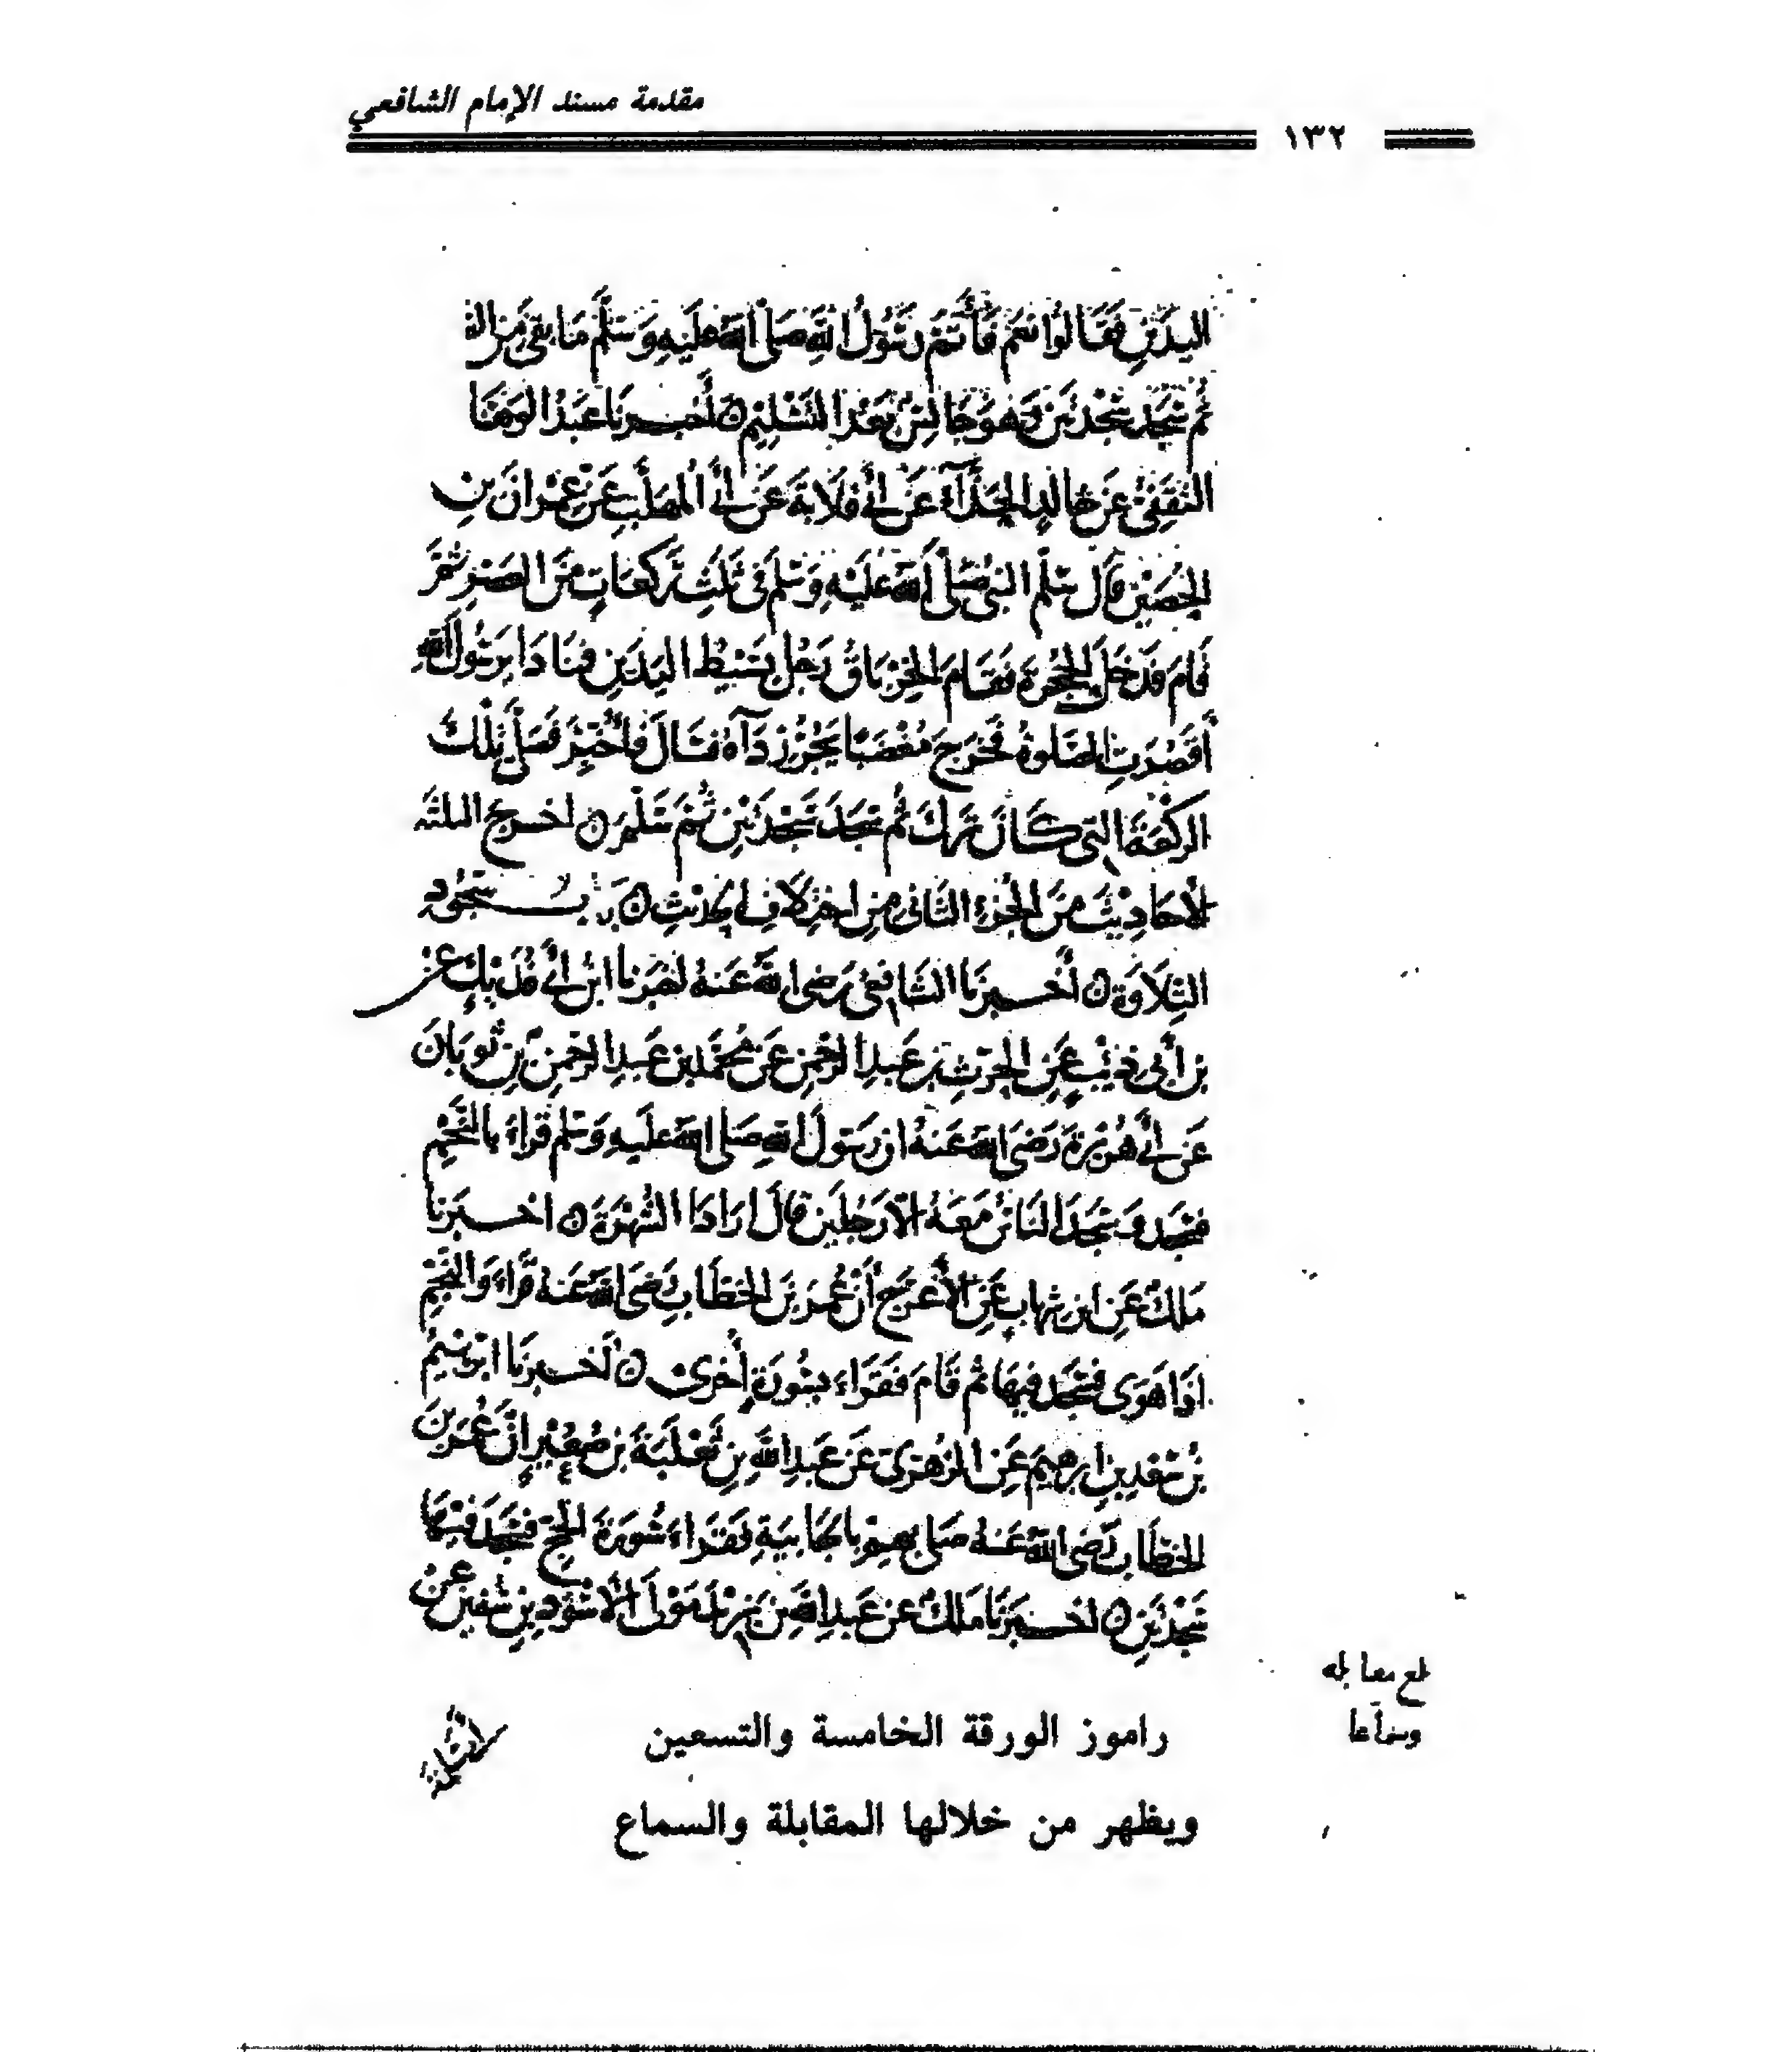 مقدمة مسند الإمام الشافعي
١٣٢
اليدين فقالوا نعم فأتم رسول الله صلى الله عليه وسلم ما بقي من الصلاة
ثم سجد سجدتين وهو جالس بعد التسليم ه أخبرنا عبد الوهاب
الثقفي عن خالد الحذاء عن أبي قلابة عن أبي المهلب عن عمران بن
الحصين قال سلم النبي صلى الله عليه وسلم في ثلث ركعات من العصر ثم
قام فدخل الحجرة فقام الخرباق رجل بسيط اليدين فنادا يرسول الله
أقصرت الصلوة فخرج مغضبا يجر رداءه فسأل فأخبر فصلى تلك
الركعة التي كان ترك ثم سجد سجدتين ثم سلم ه اخرج الثلثة
الأحاديث من الجزء الثاني من اختلاف الحديث ه باب سجود
التلاوة ه أخبرنا الشافعي رضي الله عنه أخبرنا ابن أبي فديك عن
بن أبي ذئب عن الحرث بن عبد الرحمن عن محمد بن عبد الرحمن بن ثوبان
عن أبي هريرة رضي الله عنه ان رسول الله صلى الله عليه وسلم قراء بالنجم
فسجد وسجد الناس معه الا رجلين قال ارادا الشهرة ه اخبرنا
ملك عن ابن شهاب عن الأعرج أن عمر بن الخطاب رضي الله عنه قراء والنجم
اذا هوى فسجد فيها ثم قام فقراء بسورة أخرى ه أخبرنا ابرهيم
بن سعد بن ابرهيم عن الزهري عن عبد الله بن ثعلبة بن صعير ان عمر بن
الخطاب رضي الله عنه صلى بهم بالجابية فقراء سورة الحج فسجد فيها
سجدتين ه اخبرنا ملك عن عبد الله بن يزيد مولى الأسود بن سفين عن
بلغ مقابلة
وسماعا
راموز الورقة الخامسة والتسعين
ويظهر من خلالها المقابلة والسماع